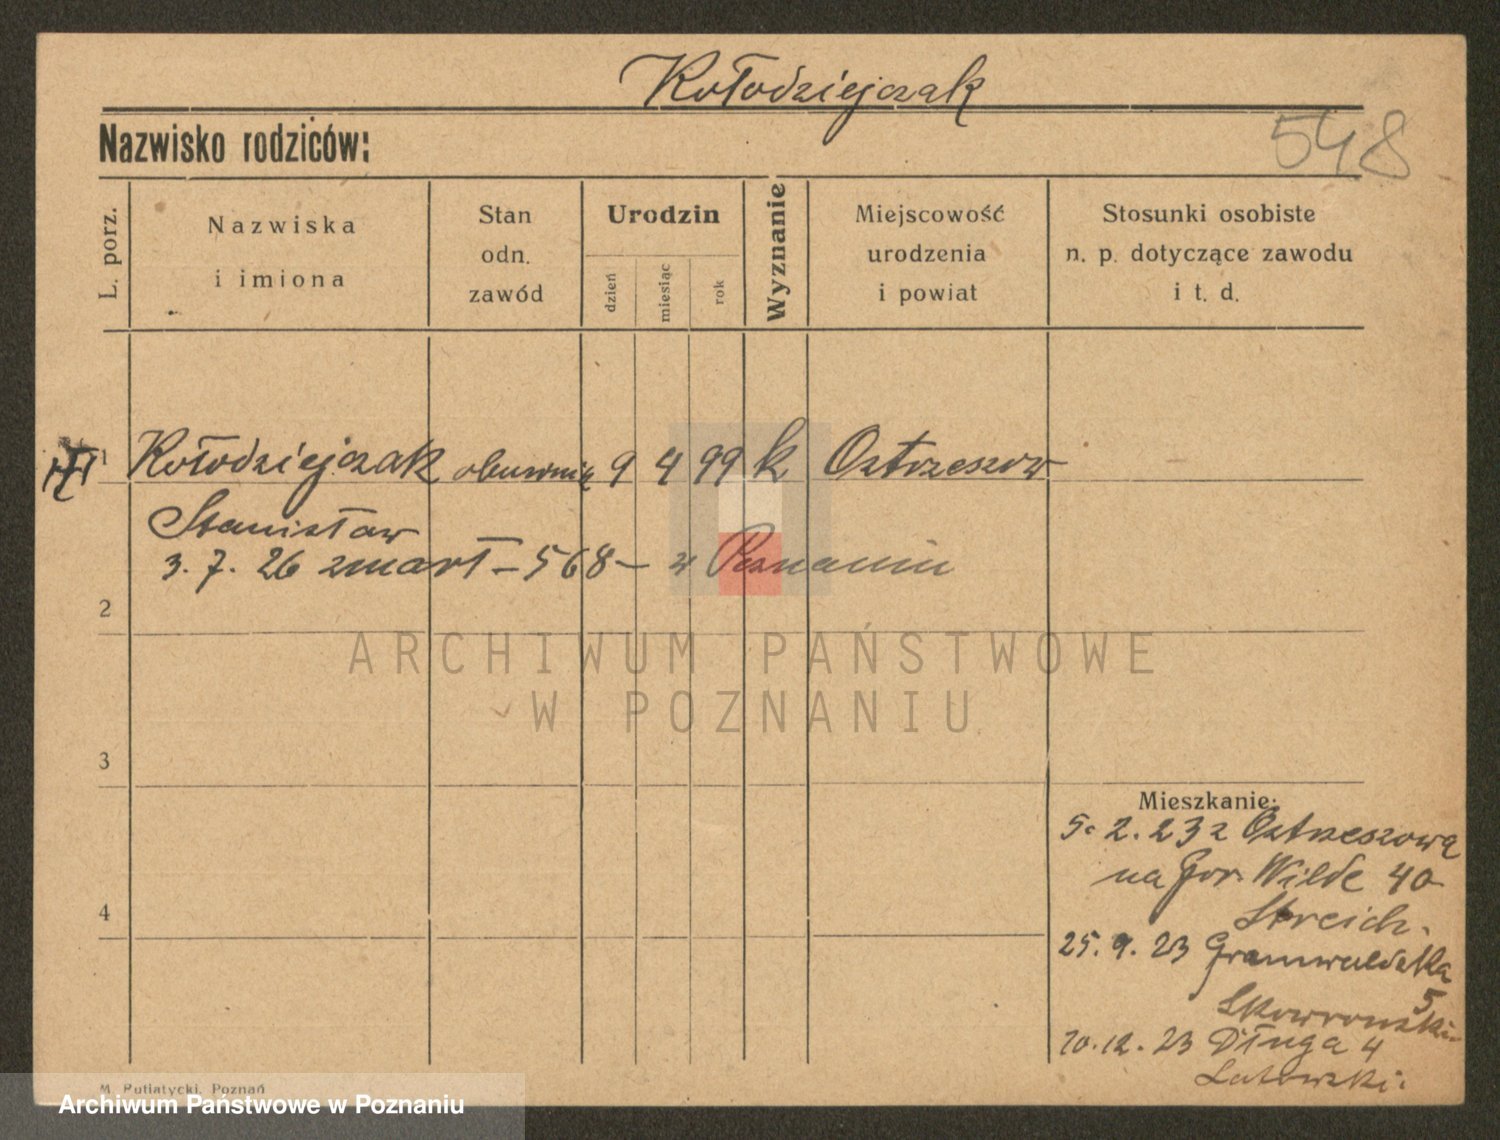 Kołodziejczak
548
Nazwisko rodziców:
L. porz.
Nazwiska
i imiona
Stan
odn.
zawód
Urodzin
dzień
miesiąc
rok
Wyznanie
Miejscowość
urodzenia
i powiat
Stosunki osobiste
n. p. dotyczące zawodu
i t. d.
1 Kołodziejczak obuwnik 9 4 99 k Ostrzeszow
Stanisław
3. 7. 26 zmarł - 568 - w Poznaniu
2
ARCHIWUM PAŃSTWOWE
W POZNANIU
3
4
Mieszkanie:
5. 2. 23 z Ostrzeszowa
na Gor. Wilde 40
Streich.
25. 9. 23 Grunwaldzka
5
Skowronski.
10. 12. 23 Długa 4
Latowski.
M. Putiatycki, Poznań
Archiwum Państwowe w Poznaniu